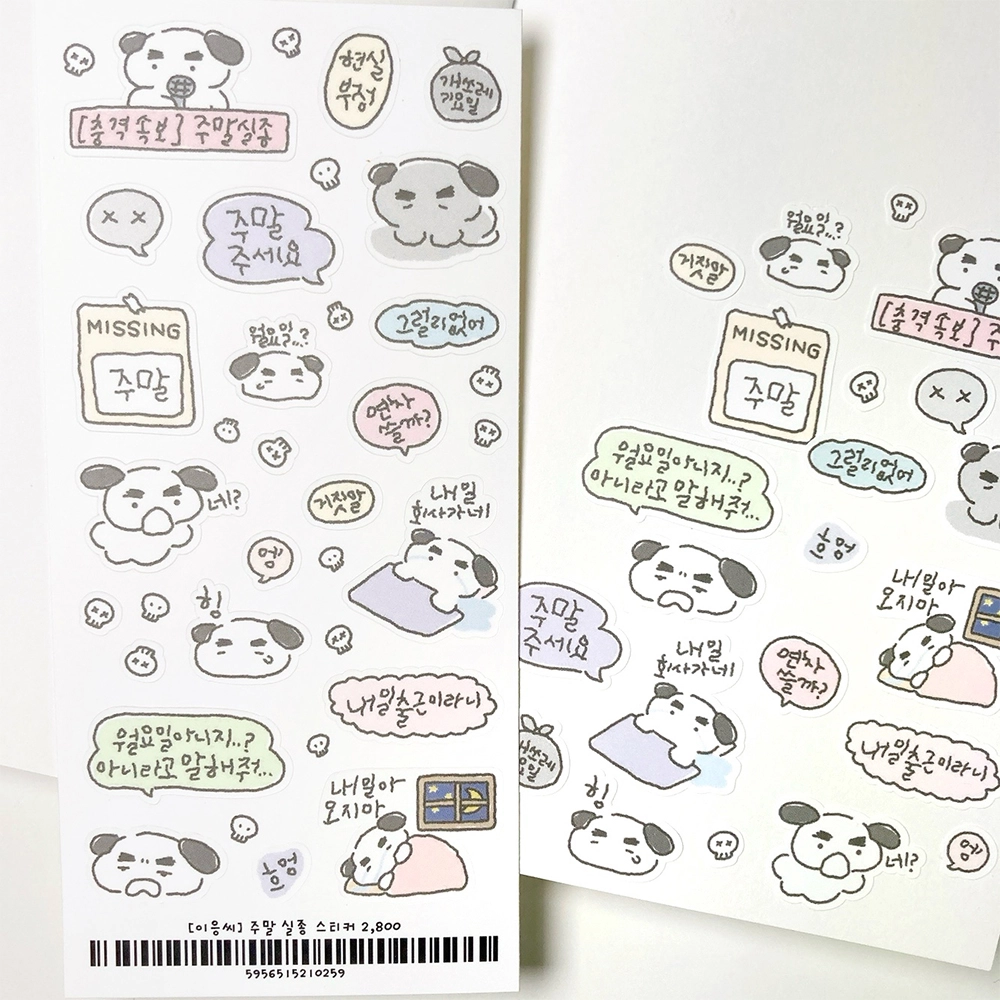 현실
부정
개쓰레
기요일
[충격속보] 주말실종
주말
주세요
MISSING
주말
월요일..?
그럴리없어
연차
쓸까?
네?
거짓말
내일
회사가네
엥
힝
내일출근이라니
월요일아니지..?
아니라고 말해줘...
내일아
오지마
흐엉
[이응씨] 주말 실종 스티커 2,800
5956515210259
월요일..?
거짓말
[충격속보] 주
MISSING
주말
월요일아니지..?
아니라고 말해줘...
그럴리없어
흐엉
내일아
오지마
주말
주세요
내일
회사가네
연차
쓸까?
내일출근이라니
힝
네?
엥